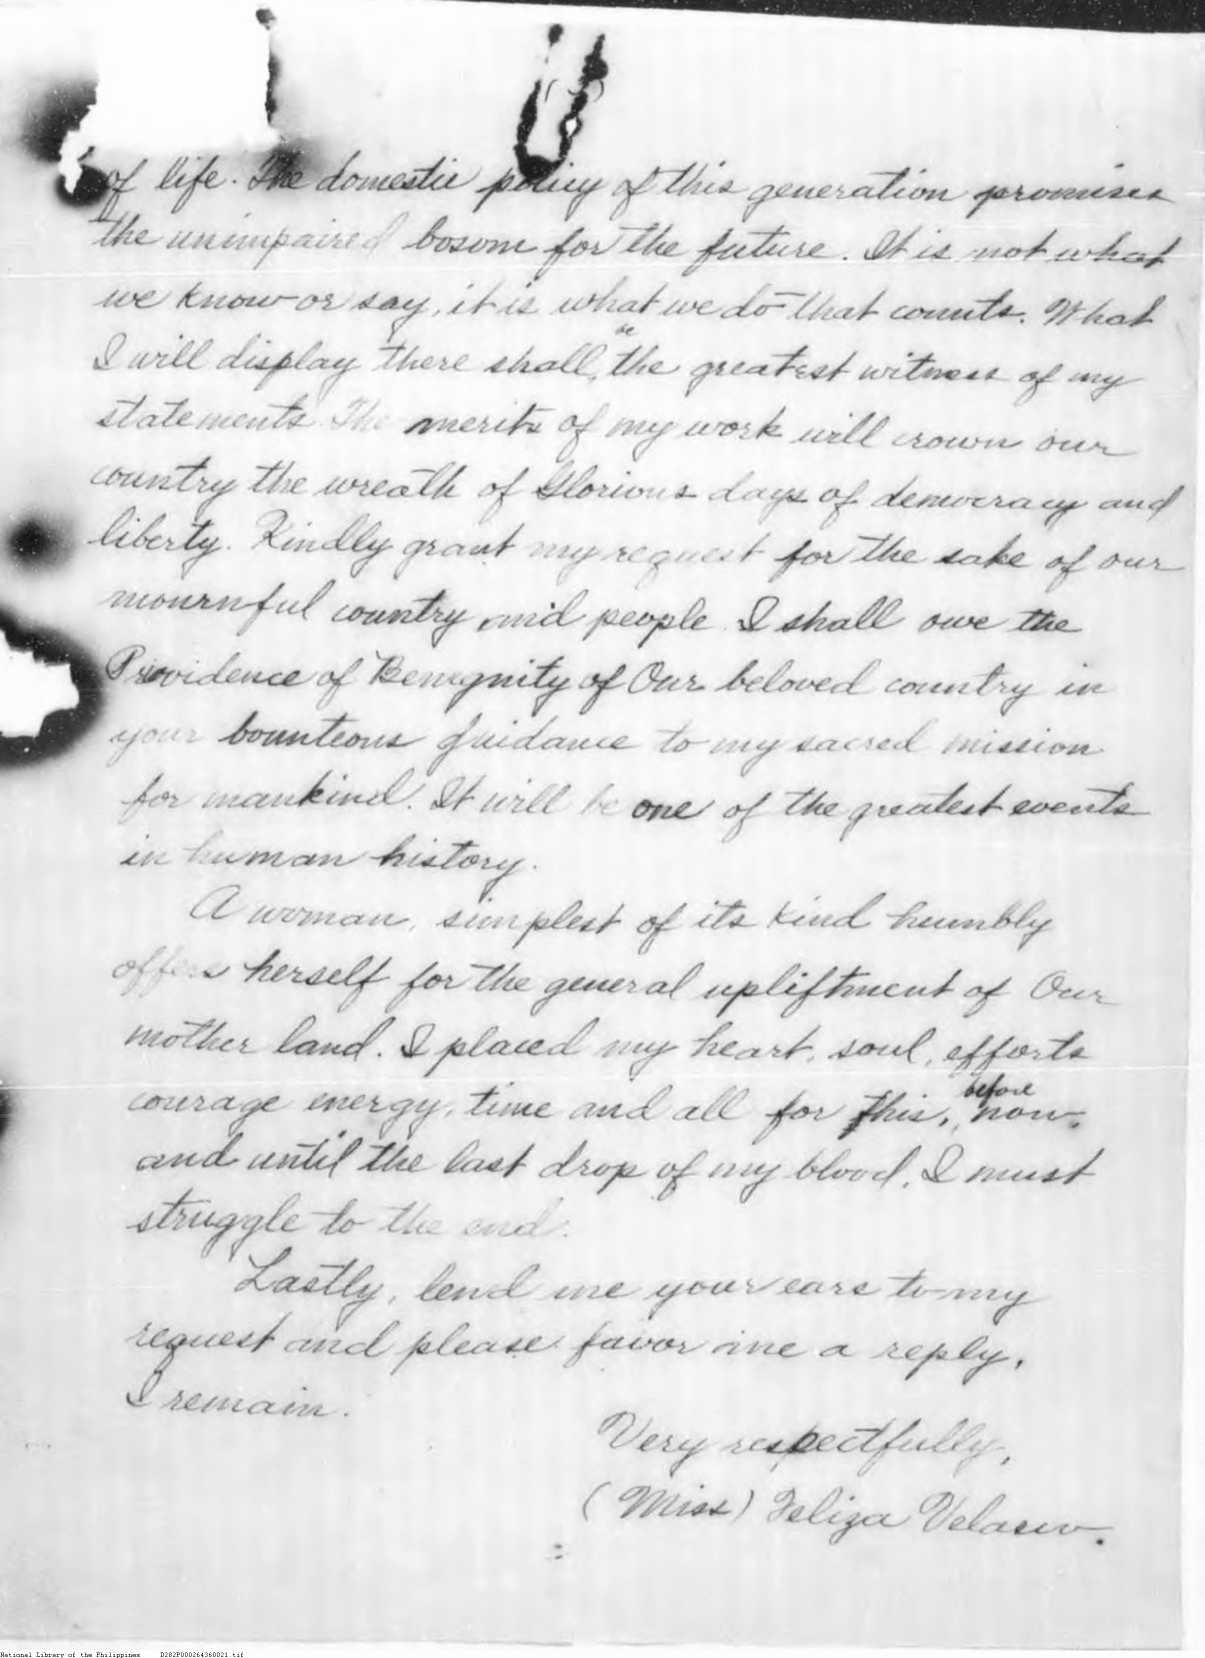 of life. The domestic policy of this generation promises
the unimpaired bosom for the future. It is not what
we know or say, it is what we do that counts. What
I will display there shall be the greatest witness of my
statements. The merits of my work will crown our
country the wreath of Glorious days of democracy and
liberty. Kindly grant my request for the sake of our
mournful country and people. I shall owe the
Providence of Benignity of Our beloved country in
your bounteous guidance to my sacred mission
for mankind. It will be one of the greatest events
in human history.
A woman, simplest of its kind humbly
offers herself for the general upliftment of Our
mother land. I placed my heart, soul, efforts
courage energy, time and all for this, before now,
and until the last drop of my blood, I must
struggle to the end.
Lastly, lend me your ears to my
request and please favor me a reply,
I remain.
Very respectfully,
(Miss) Feliza Velasco.
National Library of the Philippines D282P000264360021.tif